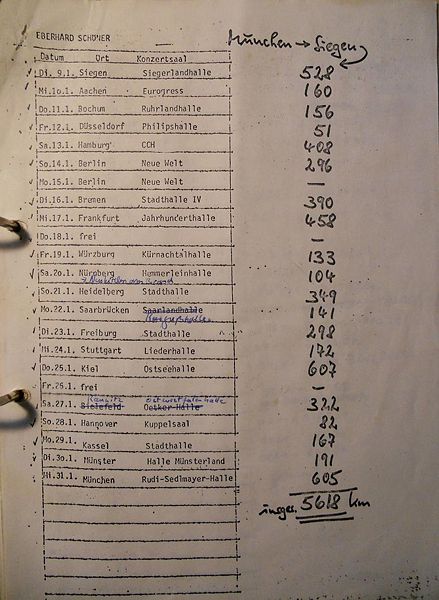 EBERHARD SCHÖNER
München → Siegen
Datum Ort Konzertsaal
Di. 9.1. Siegen Siegerlandhalle 528
Mi.10.1. Aachen Eurogress 160
Do.11.1. Bochum Ruhrlandhalle 156
Fr.12.1. Düsseldorf Philipshalle 51
Sa.13.1. Hamburg CCH 408
So.14.1. Berlin Neue Welt 296
Mo.15.1. Berlin Neue Welt —
Di.16.1. Bremen Stadthalle IV 390
Mi.17.1. Frankfurt Jahrhunderthalle 458
Do.18.1. frei —
Fr.19.1. Würzburg Kürnachtalhalle 133
Sa.20.1. Nürnberg Hemmerleinhalle 104
So.21.1. Heidelberg Stadthalle 349
Mo.22.1. Saarbrücken Saarlandhalle 141
Di.23.1. Freiburg Stadthalle 298
Mi.24.1. Stuttgart Liederhalle 172
Do.25.1. Kiel Ostseehalle 607
Fr.26.1. frei —
Ostwestfalenhalle
Sa.27.1. Bielefeld Oetker-Halle 322
So.28.1. Hannover Kuppelsaal 82
Mo.29.1. Kassel Stadthalle 167
Di.30.1. Münster Halle Münsterland 191
Mi.31.1. München Rudi-Sedlmayer-Halle 605
insges. 5618 km